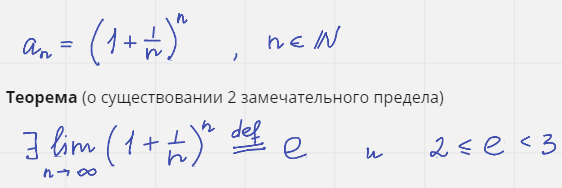 aₙ = (1 + 1/n)ⁿ , n ∈ ℕ
Теорема (о существовании 2 замечательного предела)
∃ lim n→∞ (1 + 1/n)ⁿ def= e и 2 ≤ e < 3